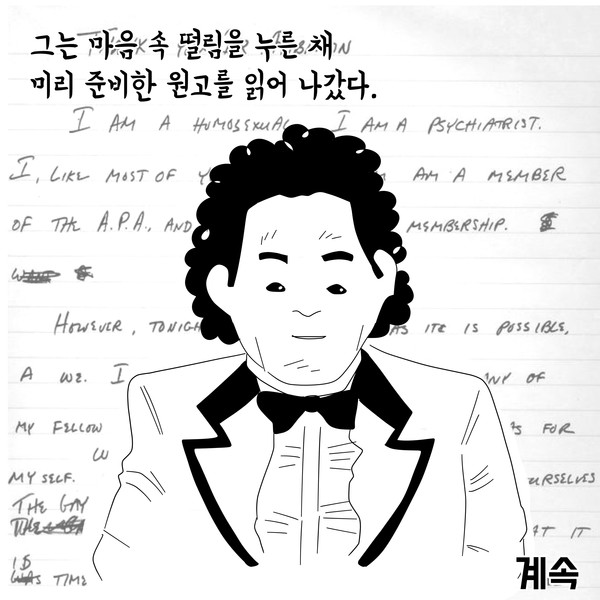 그는 마음 속 떨림을 누른 채
미리 준비한 원고를 읽어 나갔다.
I AM A HOMOSEXUAL I AM A PSYCHIATRIST.
I, LIKE MOST OF AM A MEMBER
OF THE A.P.A., AND MEMBERSHIP.
HOWEVER, TONIGHT AS IT IS POSSIBLE,
A WE. I OF
MY FELLOW FOR
W
MYSELF. OURSELVES
THE GAY
AT IT
IS
TIME
계속